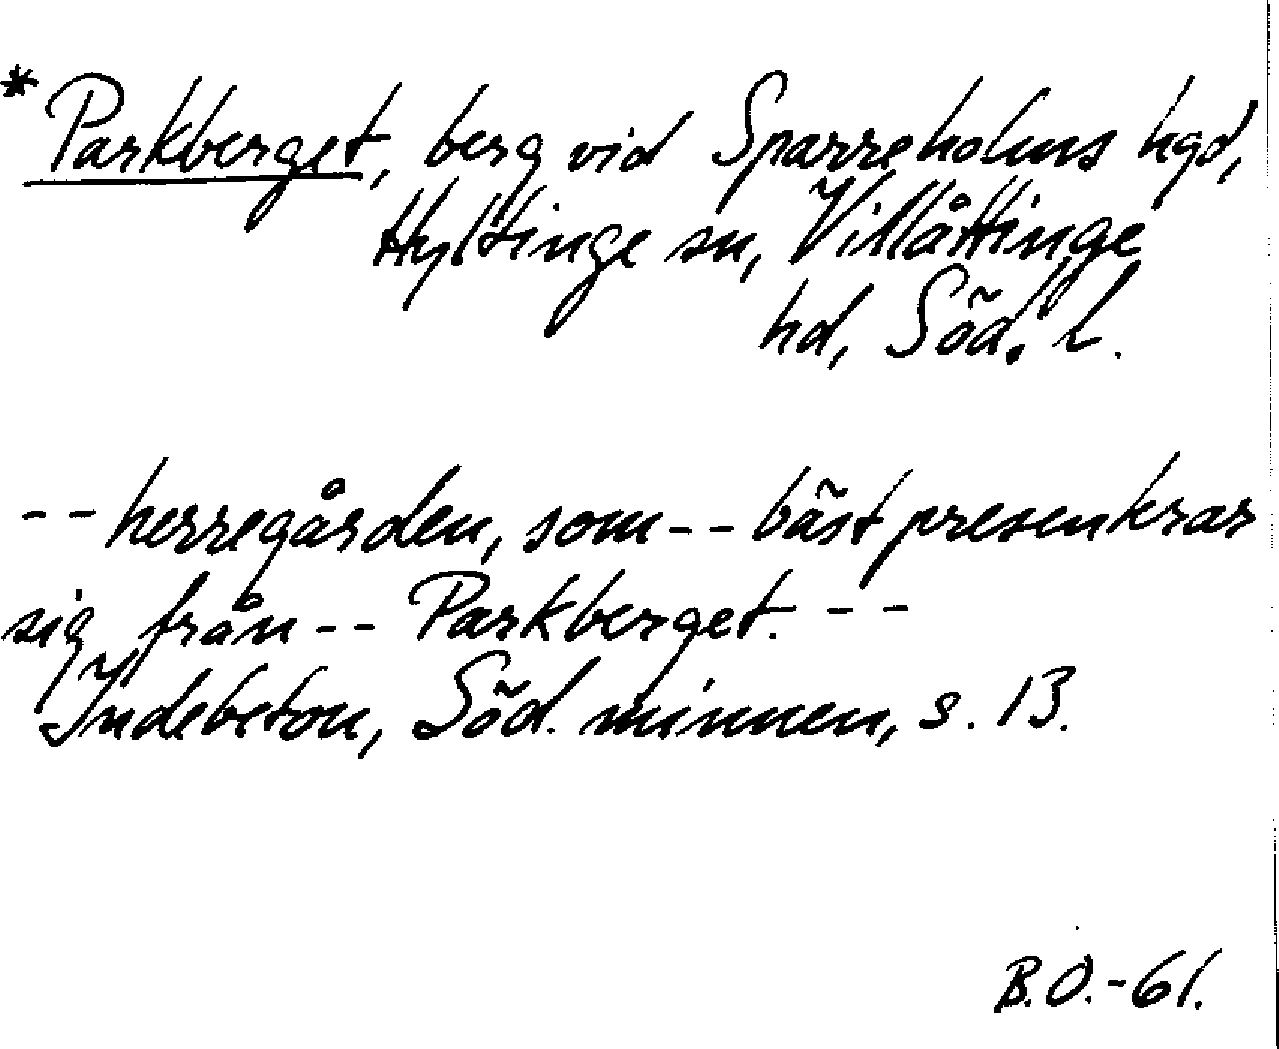 * Parkberget, berg vid Sparreholms hgd,
Hyltinge sn, Villåttinge
hd, Söd. l.
-- herregården, som -- bäst presenterar
sig från -- Parkberget. --
Indebetou, Söd. minnen, s. 13.
B.O.-61.